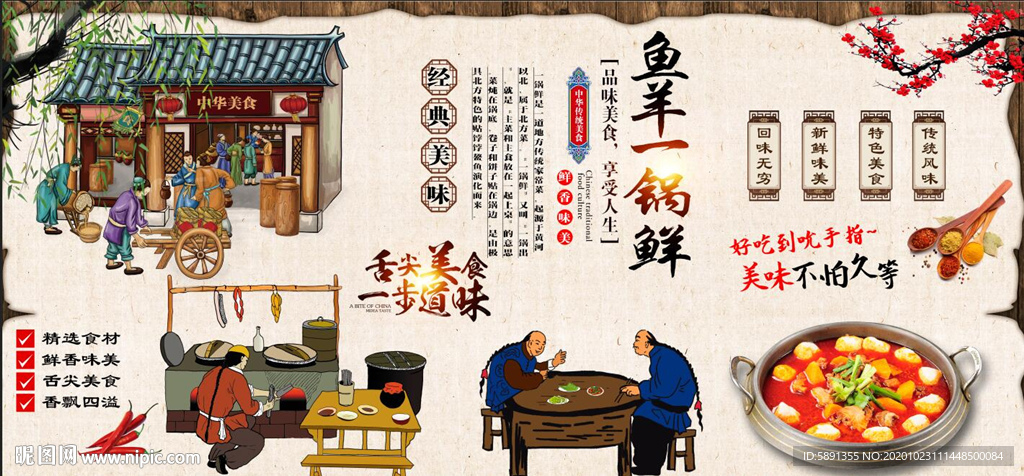 中华美食
经典美味
一锅鲜是一道地方传统家常菜,起源于黄河
以北,属于北方菜。一锅鲜。又叫。一锅出
。就是。主菜和主食放在一起上桌。的意思
菜炖在锅底。卷子和饼子贴在锅边。是由极
具北方特色的贴饽饽熬鱼演化而来.
中华传统美食
鲜香味美
Chinese traditional
food culture
[品味美食,享受人生]
鱼羊一锅鲜
回味无穷
新鲜味美
特色美食
传统风味
好吃到吮手指~
美味不怕久等
舌尖美食
一步道味
A BITE OF CHINA
精选食材
鲜香味美
舌尖美食
香飘四溢
昵图网 www.nipic.com
ID:5891355 NO:20201023111448500084